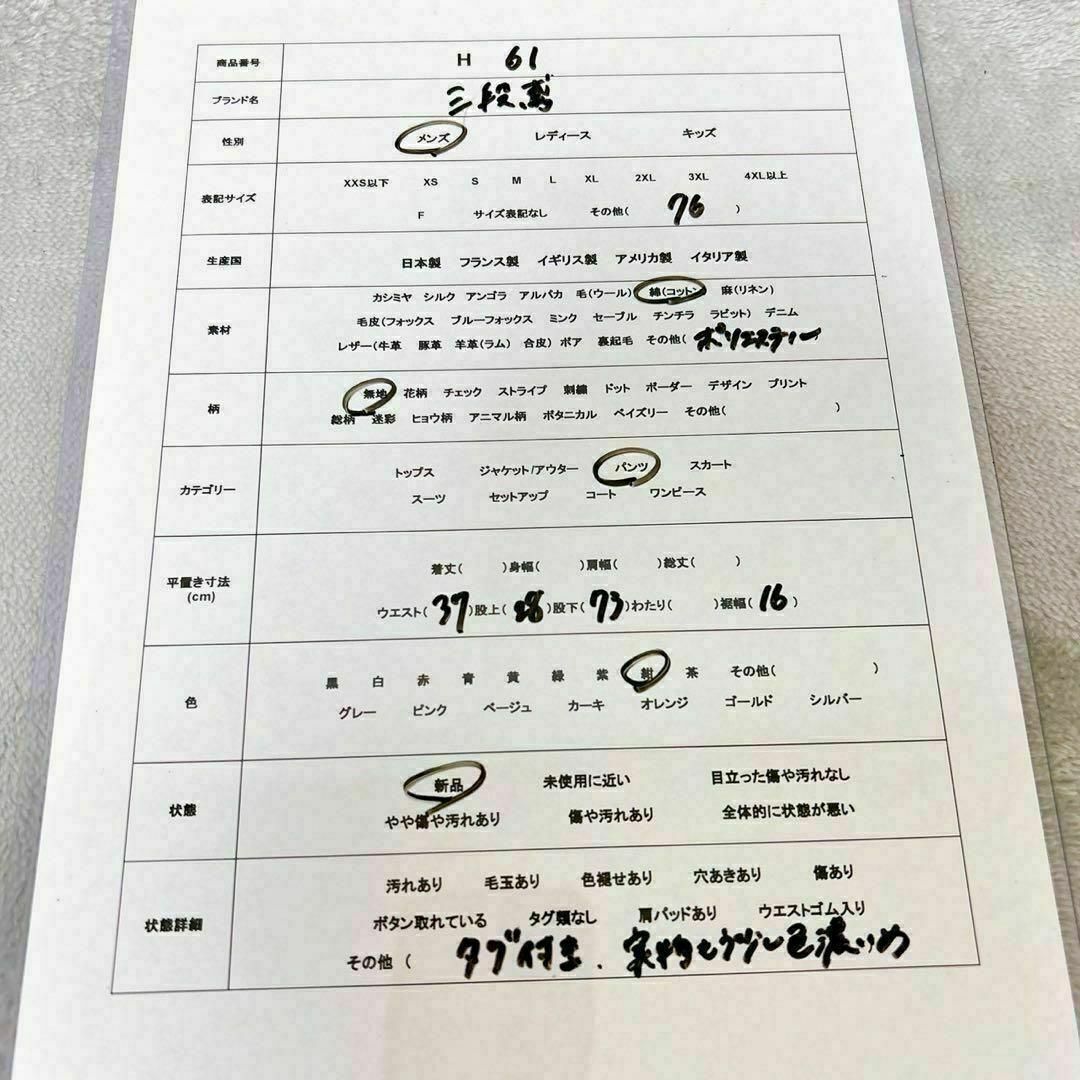 商品番号 H 61
ブランド名 三段鳶
性別 メンズ レディース キッズ
XXS以下 XS S M L XL 2XL 3XL 4XL以上
表記サイズ
F サイズ表記なし その他( 76 )
生産国 日本製 フランス製 イギリス製 アメリカ製 イタリア製
カシミヤ シルク アンゴラ アルパカ 毛(ウール) 綿(コットン 麻(リネン)
素材 毛皮(フォックス ブルーフォックス ミンク セーブル チンチラ ラビット) デニム
レザー(牛革 豚革 羊革(ラム) 合皮) ボア 裏起毛 その他( ポリエステルー
柄 無地 花柄 チェック ストライプ 刺繍 ドット ボーダー デザイン プリント
総柄 迷彩 ヒョウ柄 アニマル柄 ボタニカル ペイズリー その他( )
トップス ジャケット/アウター パンツ スカート
カテゴリー
スーツ セットアップ コート ワンピース
平置き寸法 着丈( )身幅( )肩幅( )総丈( )
(cm) ウエスト( 37 )股上( 28 )股下( 73 )わたり( )裾幅( 16 )
色 黒 白 赤 青 黄 緑 紫 紺 茶 その他( )
グレー ピンク ベージュ カーキ オレンジ ゴールド シルバー
状態 新品 未使用に近い 目立った傷や汚れなし
やや傷や汚れあり 傷や汚れあり 全体的に状態が悪い
汚れあり 毛玉あり 色褪せあり 穴あきあり 傷あり
状態詳細 ボタン取れている タグ類なし 肩パッドあり ウエストゴム入り
その他 ( タグ付き、実物もう少し色濃いめ